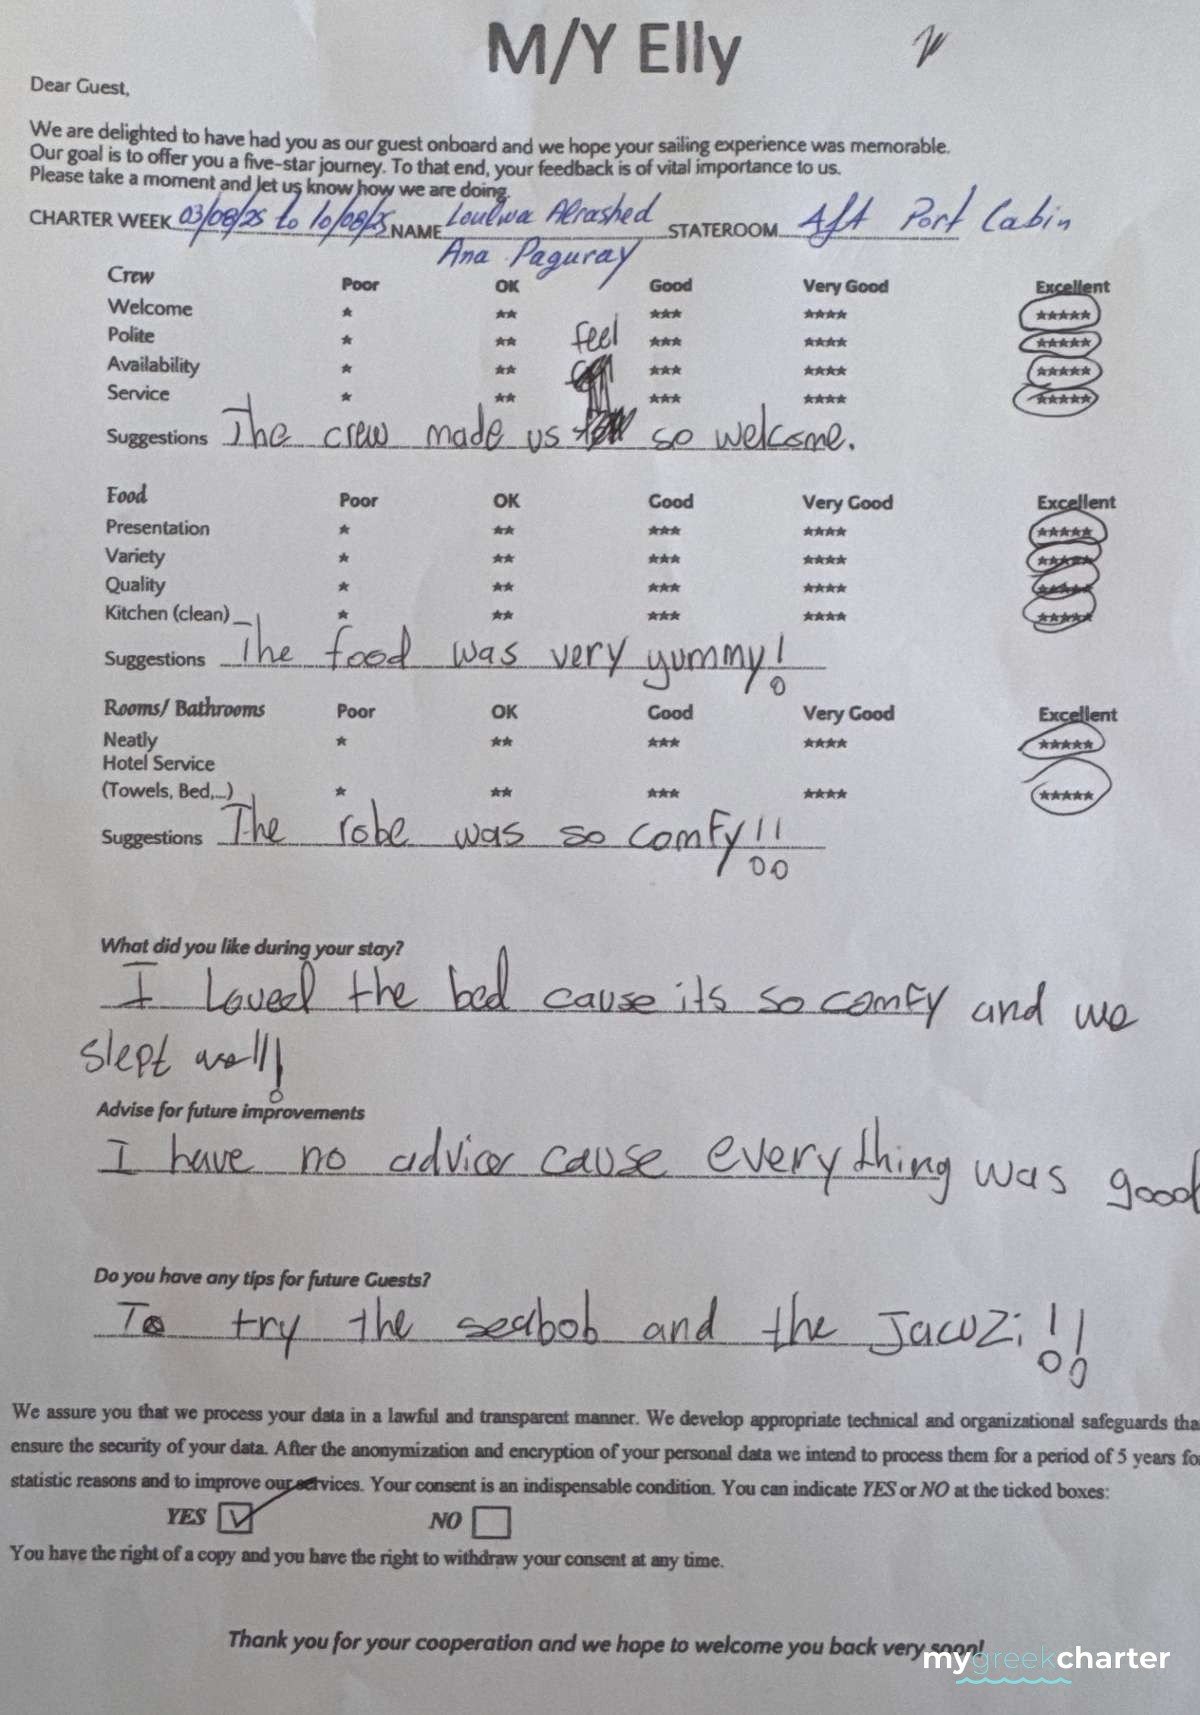 M/Y Elly
Dear Guest,
We are delighted to have had you as our guest onboard and we hope your sailing experience was memorable.
Our goal is to offer you a five-star journey. To that end, your feedback is of vital importance to us.
Please take a moment and let us know how we are doing.
CHARTER WEEK 03/08/25 to 10/08/25 NAME Loulwa Alrashed STATEROOM Aft Port Cabin
Ana Paguray
Crew Poor OK Good Very Good Excellent
Welcome * ** *** **** *****
Polite * ** *** **** *****
feel
Availability * ** *** **** *****
Service * ** *** **** *****
Suggestions The crew made us so welcome.
Food Poor OK Good Very Good Excellent
Presentation * ** *** **** *****
Variety * ** *** **** *****
Quality * ** *** **** *****
Kitchen (clean) * ** *** **** *****
Suggestions The food was very yummy!
Rooms/ Bathrooms Poor OK Good Very Good Excellent
Neatly * ** *** **** *****
Hotel Service
(Towels, Bed,...) * ** *** **** *****
Suggestions The robe was so comfy!!
What did you like during your stay?
I loved the bed cause its so comfy and we
slept well!
Advise for future improvements
I have no advice cause everything was good
Do you have any tips for future Guests?
To try the seabob and the Jacuzi!!
We assure you that we process your data in a lawful and transparent manner. We develop appropriate technical and organizational safeguards tha
ensure the security of your data. After the anonymization and encryption of your personal data we intend to process them for a period of 5 years fo
statistic reasons and to improve our services. Your consent is an indispensable condition. You can indicate YES or NO at the ticked boxes:
YES NO
You have the right of a copy and you have the right to withdraw your consent at any time.
Thank you for your cooperation and we hope to welcome you back very soon!
mygreekcharter